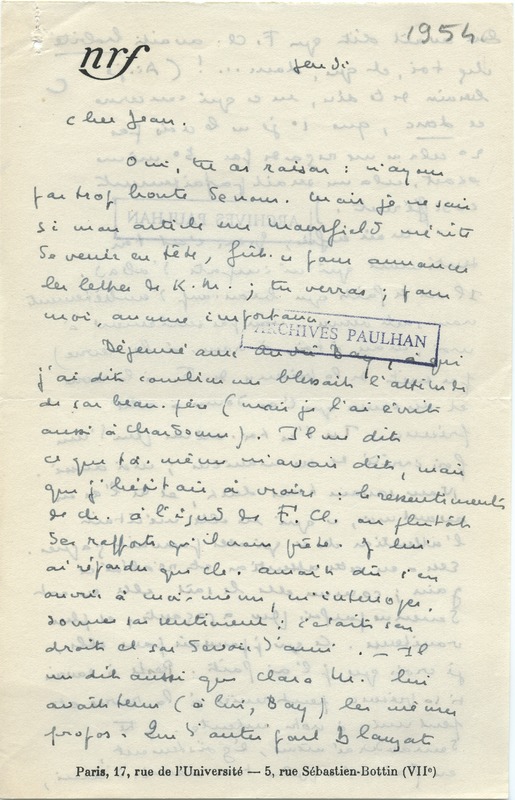 1954
nrf
jeudi
Cher Jean.
Oui, tu as raison : n'ayons
pas trop honte de nous. Mais je ne sais
si mon article sur Mansfield mérite
de venir en tête, fût-ce pour annoncer
les lettres de K. M. ; tu verras ; pour
moi, aucune importance.
ARCHIVES PAULHAN
Déjeuné avec André Bay, à qui
j'ai dit combien me blessait l'attitude
de son beau-père (mais je l'ai écrit
aussi à Chardonne). Il me dit
ce que toi-même m'avais dit, mais
que j'hésitais à croire : le ressentiment
de Ch. à l'égard de F. Cl. ou plutôt
des rapports qu'il nous prête. Je lui
ai répondu que Ch. aurait dû s'en
ouvrir à moi-même, m'interroger,
donner son sentiment : c'était son
droit et son devoir d'ami. — Il
me dit aussi que Clara M. lui
avait tenu (à lui, Bay) les mêmes
propos. Que d'autre part Blanzat
Paris, 17, rue de l'Université — 5, rue Sébastien-Bottin (VIIe)